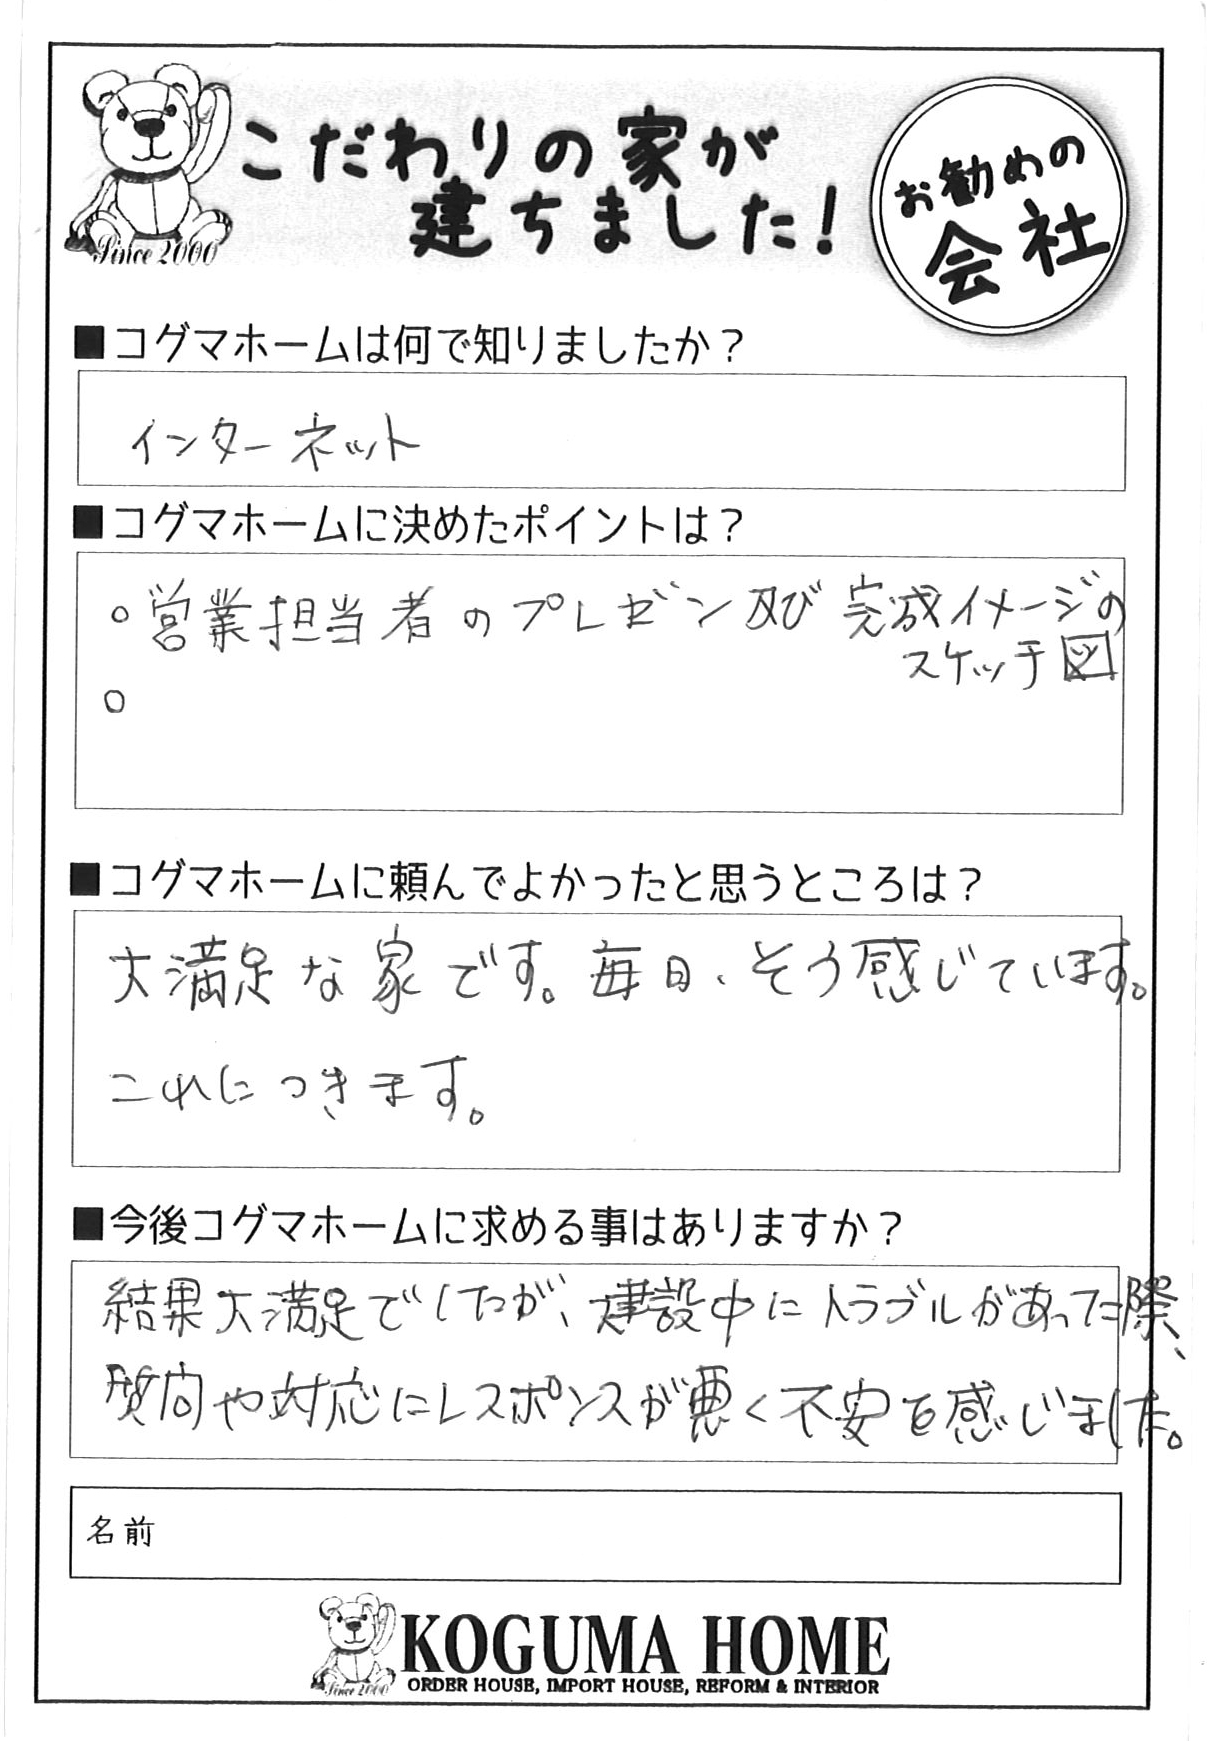 こだわりの家が
建ちました!
お勧めの
会社
Since 2000
■コグマホームは何で知りましたか?
インターネット
■コグマホームに決めたポイントは?
○営業担当者のプレゼン及び完成イメージの
スケッチ図
○
■コグマホームに頼んでよかったと思うところは?
大満足な家です。毎日、そう感じています。
これにつきます。
■今後コグマホームに求める事はありますか?
結果大満足でしたが、建設中にトラブルがあった際、
質問や対応にレスポンスが悪く不安を感じました。
名前
KOGUMA HOME
ORDER HOUSE, IMPORT HOUSE, REFORM & INTERIOR
Since 2000